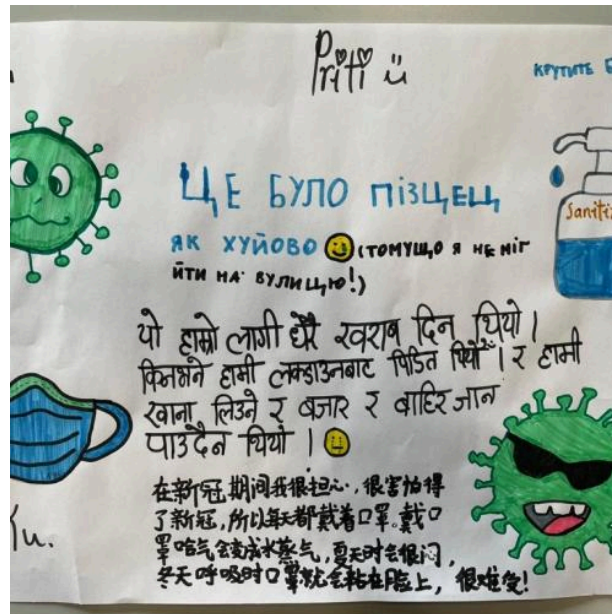 Priti ü
КРУТИТЕ Б
ЦЕ БУЛО ПІЗЦЕЦ
ЯК ХУЙОВО (ТОМУЩО Я НЕ МІГ
ЙТИ НА ВУЛИЦЮ!)
Sanitiz
यो हाम्रो लागी धेरै खराब दिन थियो ।
किनभने हामी लकडाउनबाट पिडित थियौँ । र हामी
खाना लिउने र बजार र बाहिर जान
पाउदैन थियो ।
在新冠期间我很担心,很害怕得
了新冠,所以每天都戴着口罩。戴口
罩哈气会变成水蒸气,夏天时会很闷,
冬天呼吸时口罩就会粘在脸上,很难受!
Ku.